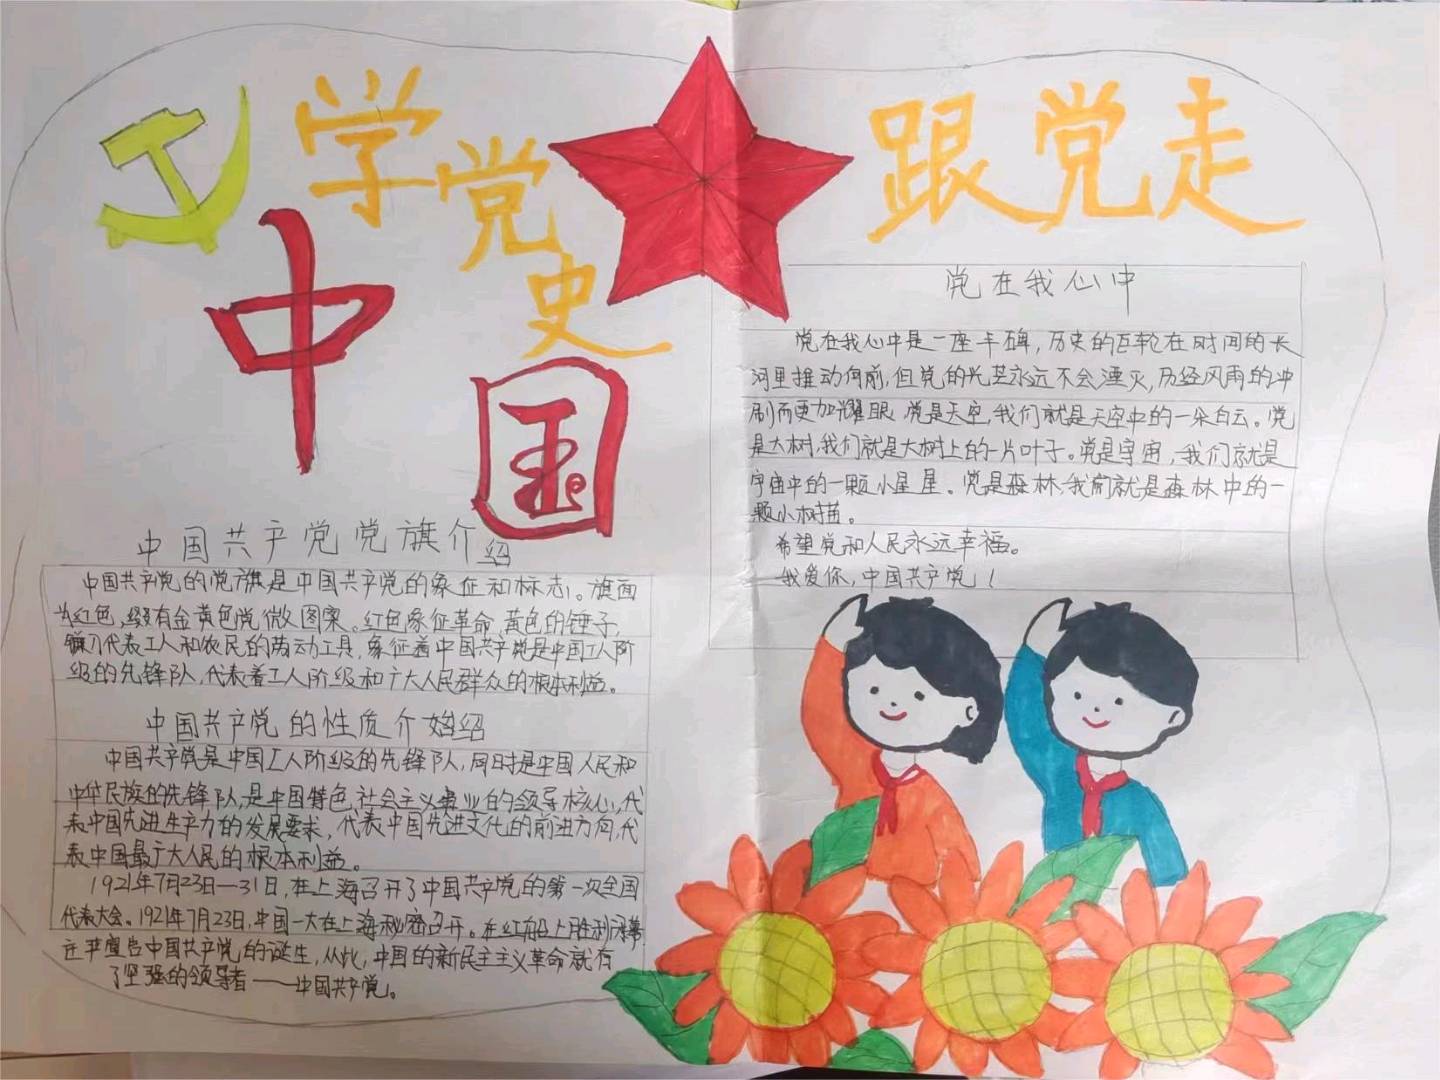 学党史
跟党走
中国
中国共产党党旗介绍
中国共产党的党旗是中国共产党的象征和标志。旗面
为红色,缀有金黄色党徽图案。红色象征革命,黄色的锤子,
镰刀代表工人和农民的劳动工具,象征着中国共产党是中国工人阶
级的先锋队,代表着工人阶级和广大人民群众的根本利益。
中国共产党的性质介绍
中国共产党是中国工人阶级的先锋队,同时是中国人民和
中华民族的先锋队,是中国特色社会主义事业的领导核心,代
表中国先进生产力的发展要求,代表中国先进文化的前进方向,代
表中国最广大人民的根本利益。
1921年7月23日—31日,在上海召开了中国共产党的第一次全国
代表大会。1921年7月23日,中国一大在上海秘密召开。在红船上胜利闭幕
庄严宣告中国共产党的诞生,从此,中国的新民主主义革命就有
了坚强的领导者——中国共产党。
党在我心中
党在我心中是一座丰碑,历史的巨轮在时间的长
河里推动向前,但党的光芒永远不会湮灭,历经风雨的冲
刷而更加耀眼,党是天空,我们就是天空中的一朵白云。党
是大树,我们就是大树上的一片叶子。党是宇宙,我们就是
宇宙中的一颗小星星。党是森林,我们就是森林中的一
颗小树苗。
希望党和人民永远幸福。
我爱你,中国共产党!